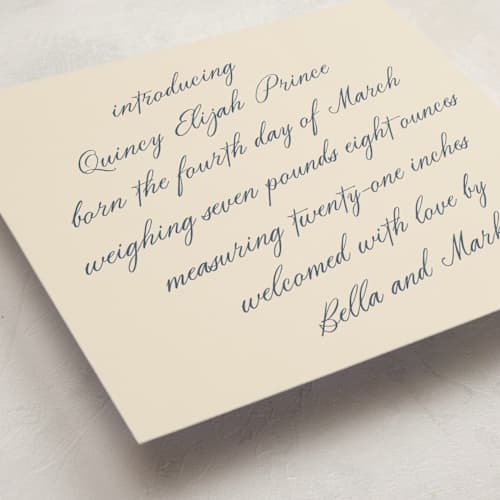 introducing
Quincy Elijah Prince
born the fourth day of March
weighing seven pounds eight ounces
measuring twenty-one inches
welcomed with love by
Bella and Mark